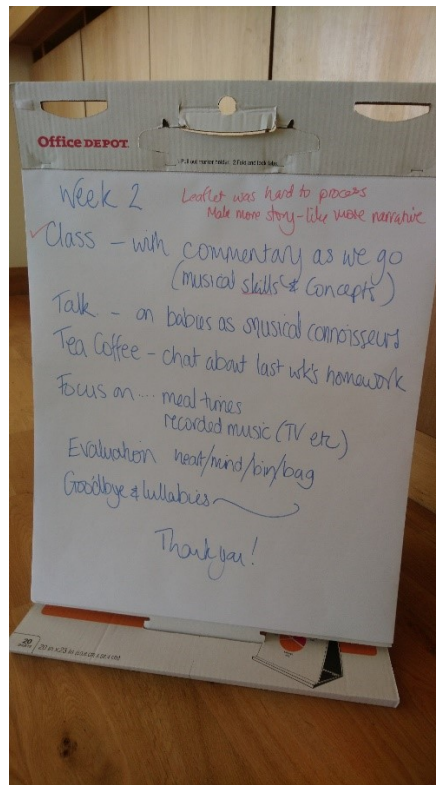 Office DEPOT.
Week 2
Leaflet was hard to process
Make more story-like more narrative
Class - with commentary as we go
(musical skills & Concepts)
Talk - on babies as musical connoisseurs
Tea Coffee - chat about last wk's homework
Focus on... meal times
recorded music (TV etc)
Evaluation heart/mind/bin/bag
Goodbye & lullabies
Thank you!
20